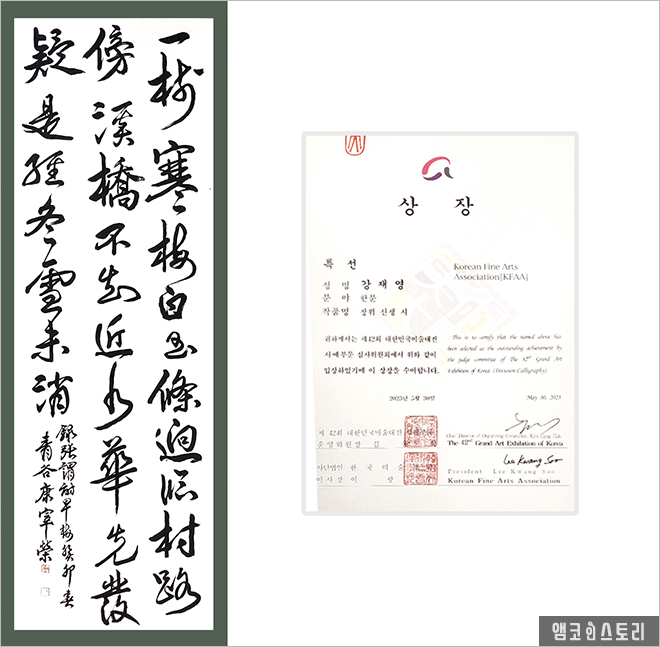 一樹寒梅白玉條迥臨村路
傍溪橋不知近水華先發
疑是經冬雪未消
錄張謂詩早梅癸卯春
靑谷康宰榮
상 장
특 선
성 명 강 재 영
분 야 한문
작품명 장위 선생 시
Korean Fine Arts
Association[KFAA]
귀하께서는 제42회 대한민국미술대전
서예부문 심사위원회에서 위와 같이
입상하였기에 이 상장을 수여합니다.
This is to certify that the named above has
been selected as the outstanding achievement by
the judge committee of The 42nd Grand Art
Exhibition of Korea (Division Calligraphy).
2023년 5월 30일
May 30, 2023
제 42회 대한민국미술대전
운영위원장 김
The 42nd Grand Art Exhibition of Korea
Lee Kwang Soo
사단법인 한국미술
President Lee Kwang Soo
이사장 이 광
Korean Fine Arts Association
앰코인스토리